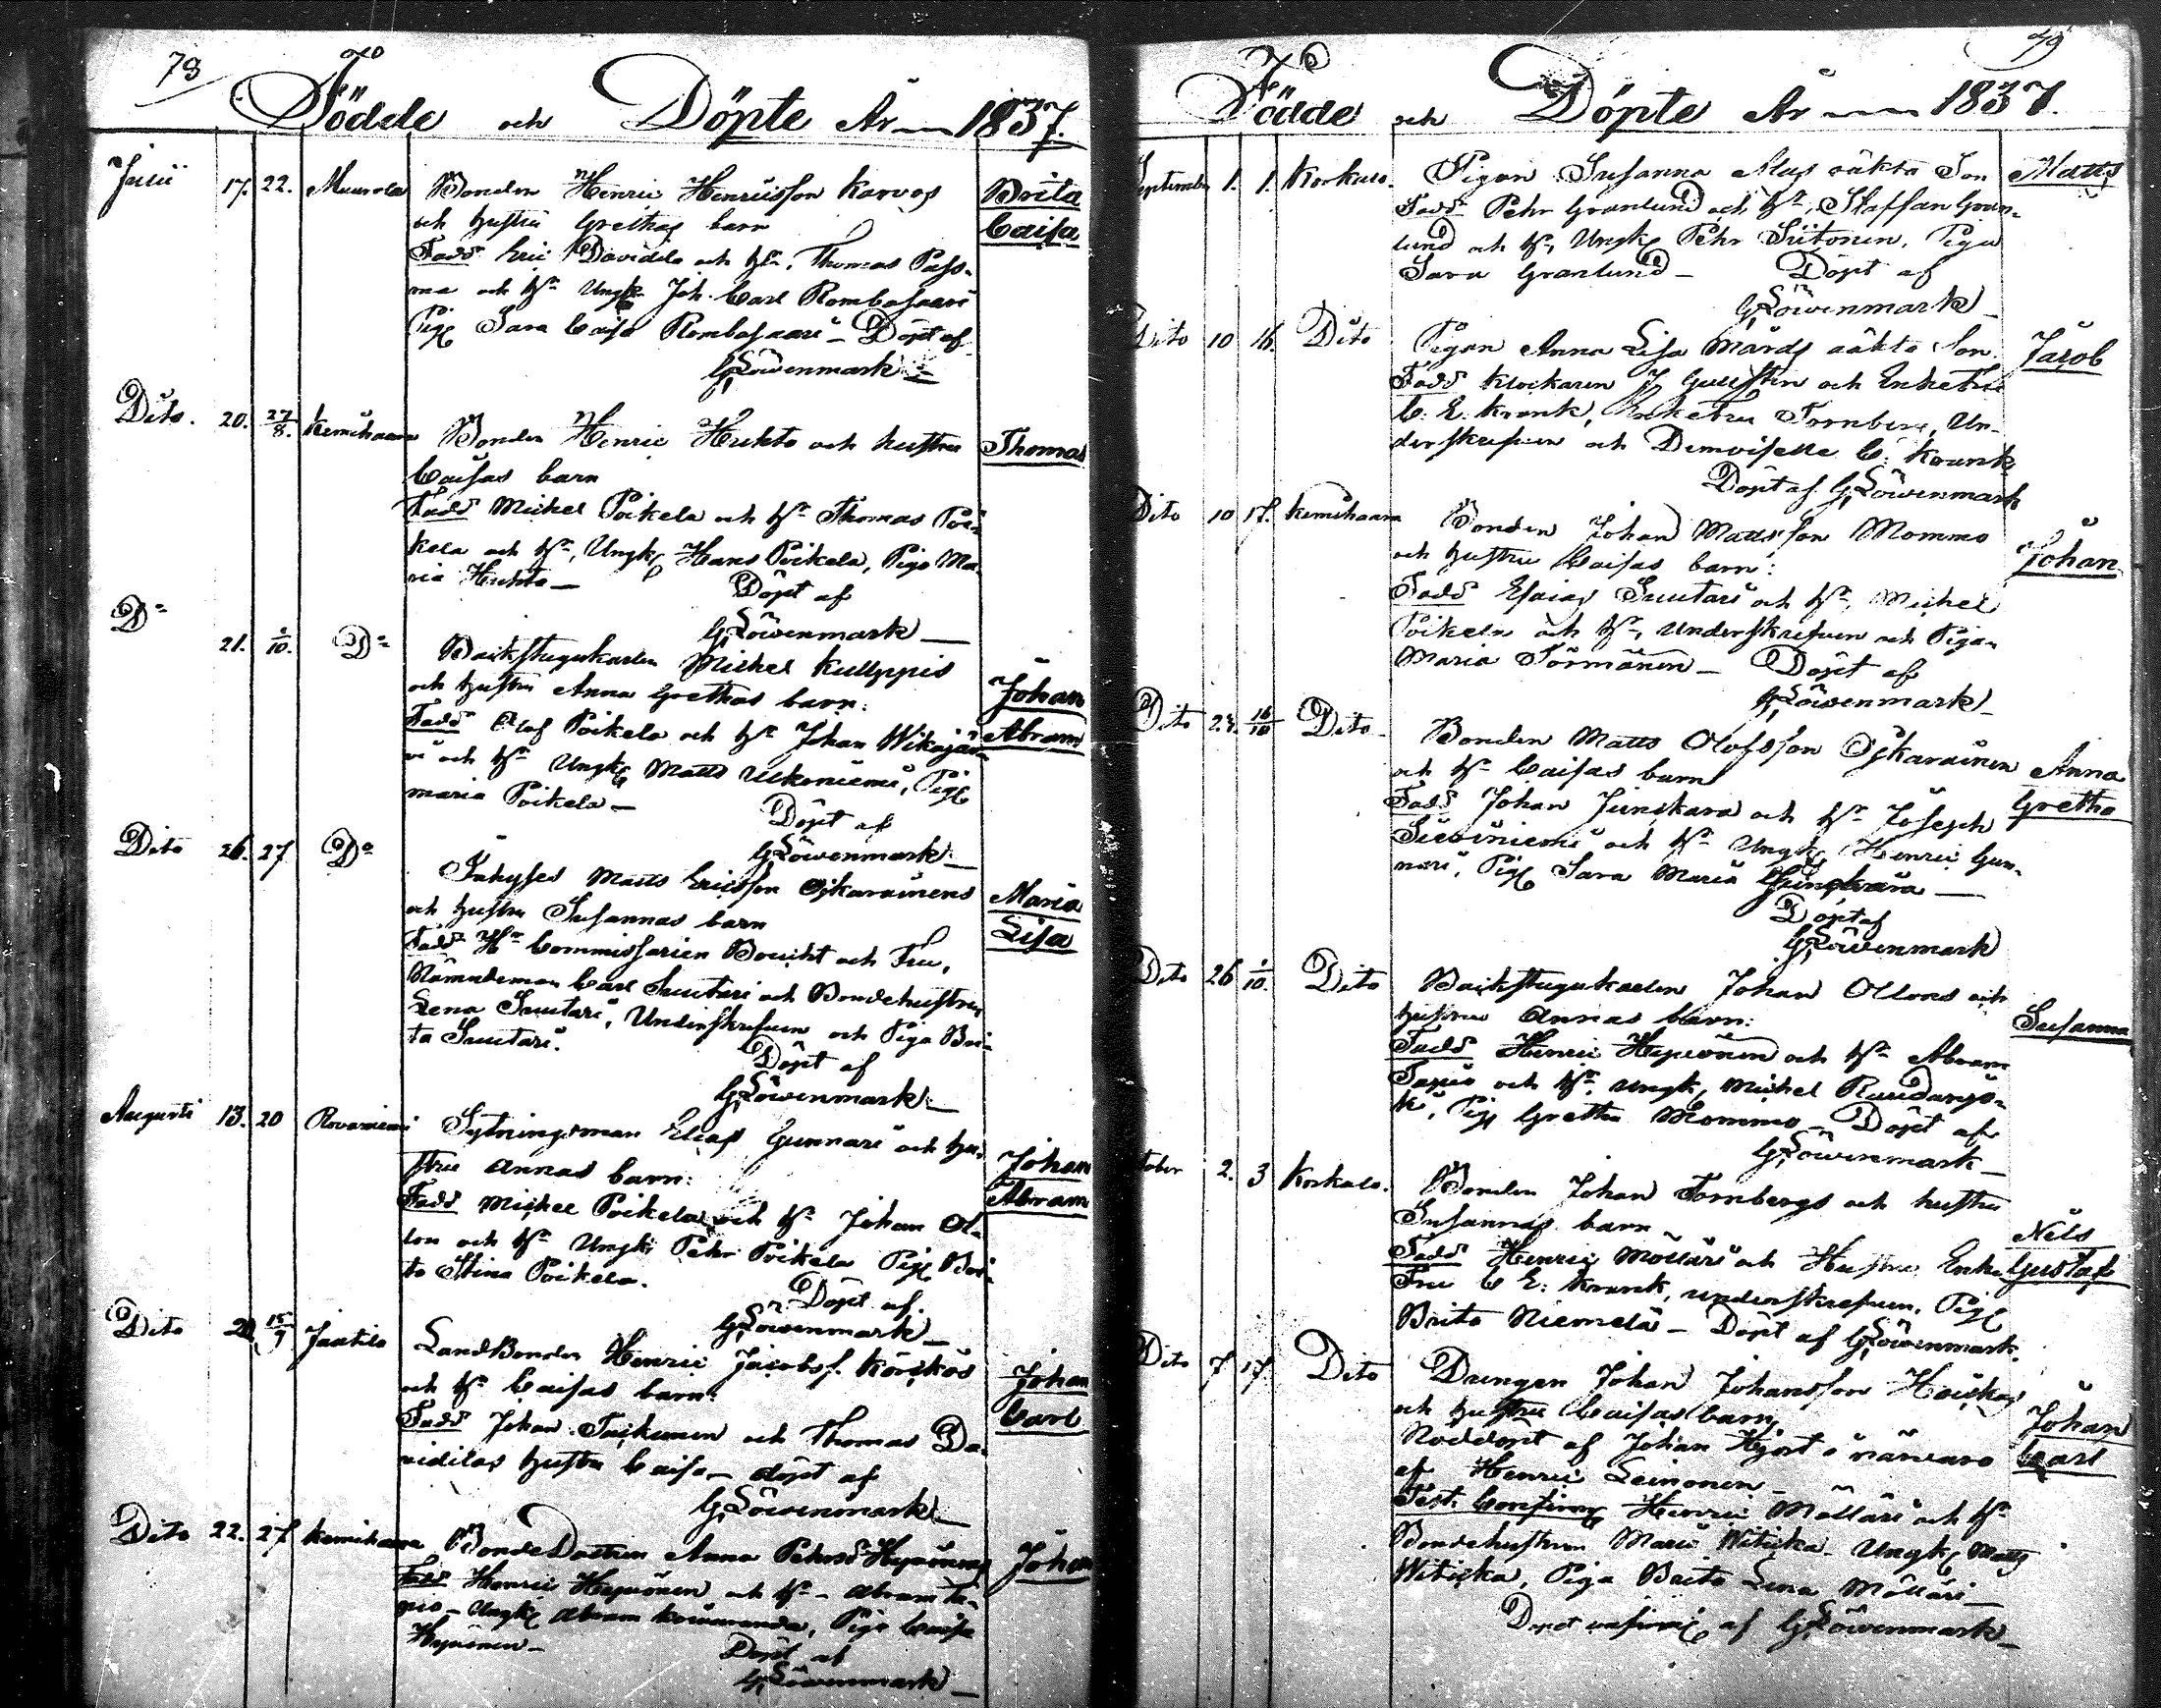 78
Födde och Döpte År 1837.
Julii 17. 22. Muurola Bonden Henric Henricsson Karvos Brita
och hustru Grethas barn Caisa
Fadd Eric Davidila och hu, Thomas Pass-
ma och hu Ungk Joh. Carl Rombasaari
Pig Sara Caisa Rombasaari – Döpt af
G Löwenmark –
Dito. 20. 27/8. Kemihaara Bonden Henric Huhta och hustru Thomas
Caisas barn
Fadd Michel Poikela och hu Thomas Poi-
kela och hu, Ungk Hans Poikela, Piga Ma-
ria Huhta – Döpt af
G Löwenmark –
Do 21. 1/10. Do Backstugukarlen Michel Kulppis Johan
och hustru Anna Grethas barn: Abram
Fadd Olof Poikela och hu Johan Wikajär-
vi och hu Ungk Matts Ukoniemi, Pig
Maria Poikela – Döpt af
G Löwenmark –
Dito 26. 27 Do Inhyses Matts Ericsson Oikarainens Maria
och hustru Susannas barn Lisa
Fadd Hr Commissarien Boucht och Fru,
Nämndeman Carl Suutari och Bondehustrun
Lena Suutari, Underskrefven och Piga Bri-
ta Suutari. Döpt af
G Löwenmark –
Augusti 13. 20 Rovaniemi Sytningsman Elias Gunnari och hu- Johan
stru Annas barn: Abram
Fadd Michel Poikela och hu Johan Ol-
lon och hu Ungk Pehr Poikela Pig Bri-
ta Stina Poikela. Döpt af.
G Löwenmark –
Dito 20 15/9 Jaatila LandBonden Henric Jacobs. Körkös Johan
och hu Caisas barn: Carl
Fadd Johan Taikinen och Thomas Da-
vidilas hustru Caisa – döpt af
G Löwenmark –
Dito 22. 27 Kemihaara BondeDottren Anna Pehrsd Hepoinens Johan
Fadd Henric Hepoinen och hu – Abram Ta-
pio – Ungk Abram Koiuranda, Piga Caisa
Hepoinen – Döpt af
G Löwenmark –
79
Födde och Döpte År 1837.
September 1. 1. Korkalo. Pigan Susanna Alas oäkta Son Matts
Fadd Pehr Granlund och hu, Staffan Gran-
lund och hu, Ungk Pehr Siitonen, Piga
Sara Granlund – Döpt af
G Löwenmark –
Dito 10 16. Dito Pigan Anna Lisa Mårds oäkta Son. Jacob
Fadd Klockaren J Gullsten och Enkefru
C. E. Krank, Enkefru Fornberg, Un-
derskrefven och Demoiselle C. Krank
Döpt af G Löwenmark
Dito 10 17. Kemihaara Bonden Johan Mattsson Mommo Johan
och hustru Caisas barn:
Fadd Esaias Suutari och hu, Michel
Poikela och hu, Underskrefven och Pigan
Maria Törmänen – Döpt af
G Löwenmark –
Dito 16/10 Dito Bonden Matts Olofsson Oikarainen Anna
och hu Caisas barn Gretha
Fadd Johan Juniskara och hu Joseph
Sieviniemi och hu Ungk Henric Gun-
nari, Pig Sara Maria –
Döpt af
G Löwenmark
Dito 26 1/10. Dito Backstugukarlen Johan Ollons och Susanna
hustru Annas barn:
Fadd Henric Hepoinen och hu Abram
Tapio och hu Ungk, Michel Ravdanjo-
ki, Pig Gretha Mommo – Döpt af
G Löwenmark –
October 2. 3 Korkalo. Bonden Johan Fornbergs och hustru Nils
Susannas barn – Gustaf
Fadd Henric Möllari och Hustru Enke
Fru C E. Krank, underskrefven, Pig
Brita Niemelä – Döpt af G Löwenmark.
Dito 7 17. Dito Drengen Johan Johansson Haiskas Johan
och hustru Caisas barn Carl
Nöddöpt af Johan Hjort i närvaro
af Henric Leinonen –
Test. Confirm Henric Möllari och hu
Bondehustrun Maria Witicka – Ungk Matts
Witicka, Piga Brita Lena Möllari –
Dopet confirm af G Löwenmark –